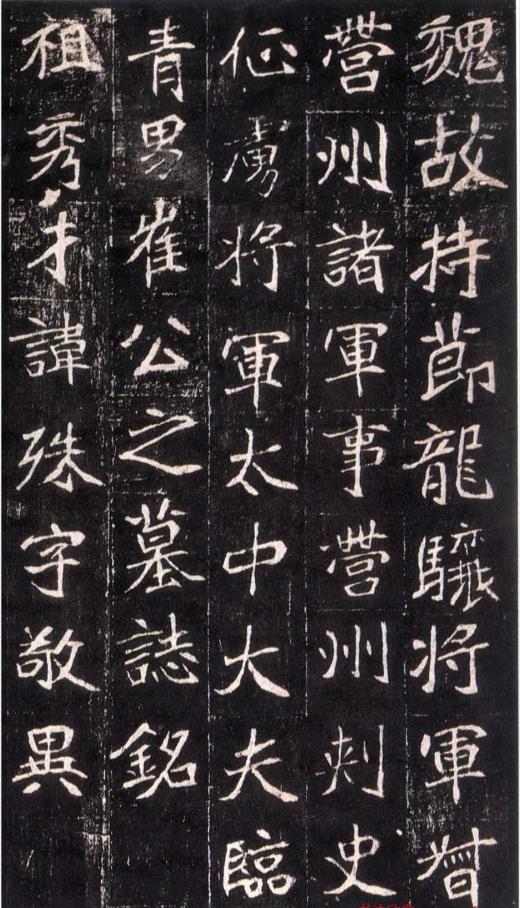 魏故持莭龍驤将軍督
營州諸軍事營州刾史
征虜将軍太中大夫臨
青男崔公之墓誌銘
祖秀才諱殊字敬異